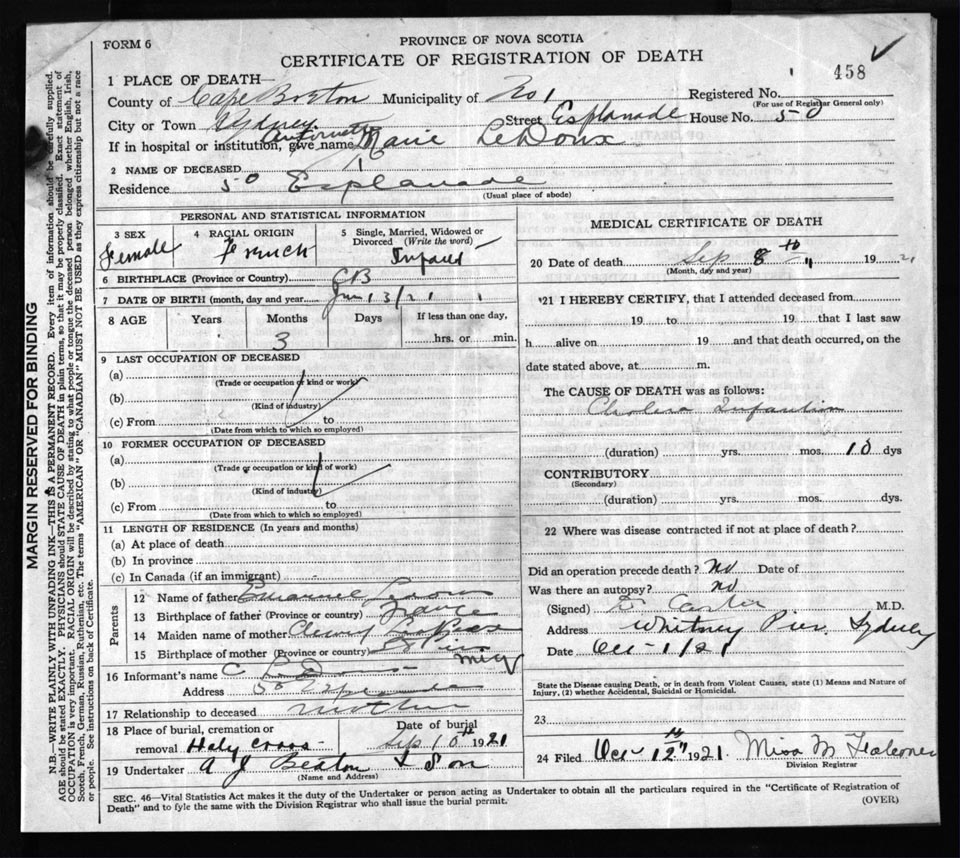 FORM 6
PROVINCE OF NOVA SCOTIA
CERTIFICATE OF REGISTRATION OF DEATH
458
1 PLACE OF DEATH—
County of Cape Breton Municipality of No 1 Registered No.
(For use of Registrar General only)
City or Town Sydney Street Esplanade House No. 50
If in hospital or institution, give name Marie LeDoux
2 NAME OF DECEASED
Residence 50 Esplanade
(Usual place of abode)
PERSONAL AND STATISTICAL INFORMATION
3 SEX Female
4 RACIAL ORIGIN French
5 Single, Married, Widowed or Divorced (Write the word) Infant
6 BIRTHPLACE (Province or Country) CB
7 DATE OF BIRTH (month, day and year) Jun 13/21
8 AGE Years Months Days If less than one day,
3 hrs. or min.
9 LAST OCCUPATION OF DECEASED
(a)
(Trade or occupation or kind or work)
(b)
(Kind of industry)
(c) From to
(Date from which to which so employed)
10 FORMER OCCUPATION OF DECEASED
(a)
(Trade or occupation or kind of work)
(b)
(Kind of industry)
(c) From to
(Date from which to which so employed)
11 LENGTH OF RESIDENCE (In years and months)
(a) At place of death
(b) In province
(c) In Canada (if an immigrant)
Parents
12 Name of father
13 Birthplace of father (Province or country) France
14 Maiden name of mother
15 Birthplace of mother (Province or country) St Pierre
16 Informant's name
Address 50 Esplanade
17 Relationship to deceased mother
18 Place of burial, cremation or removal Holy Cross
Date of burial Sep 10th 1921
19 Undertaker A J Beaton & Son
(Name and Address)
MEDICAL CERTIFICATE OF DEATH
20 Date of death Sep 8th 1921
(Month, day and year)
21 I HEREBY CERTIFY, that I attended deceased from
19 to 19 that I last saw
h alive on 19 and that death occurred, on the
date stated above, at m.
The CAUSE OF DEATH was as follows:
Cholera Infantum
(duration) yrs. mos. 10 dys
CONTRIBUTORY
(Secondary)
(duration) yrs. mos. dys.
22 Where was disease contracted if not at place of death?
Did an operation precede death? No Date of
Was there an autopsy? no
(Signed) M.D.
Address Whitney Pier Sydney
Date Oct 1/21
State the Disease causing Death, or in death from Violent Causes, state (1) Means and Nature of
Injury, (2) whether Accidental, Suicidal or Homicidal.
23
24 Filed 12th 1921. Miss M Falconer
Division Registrar
SEC. 46—Vital Statistics Act makes it the duty of the Undertaker or person acting as Undertaker to obtain all the particulars required in the "Certificate of Registration of
Death" and to fyle the same with the Division Registrar who shall issue the burial permit.
(OVER)
MARGIN RESERVED FOR BINDING
N.B.—WRITE PLAINLY WITH UNFADING INK—THIS IS A PERMANENT RECORD. Every item of information should be carefully supplied.
AGE should be stated EXACTLY. PHYSICIANS should STATE CAUSE OF DEATH in plain terms, so that it may be properly classified. Exact statement of
OCCUPATION is very important. RACIAL ORIGIN will be described by stating to what people or tongue the deceased person belonged, whether English, Irish,
Scotch, French, German, Russian, Ruthenian, etc. The terms "AMERICAN" OR "CANADIAN" MUST NOT BE USED as they express citizenship but not a race
or people. See instructions on back of Certificate.